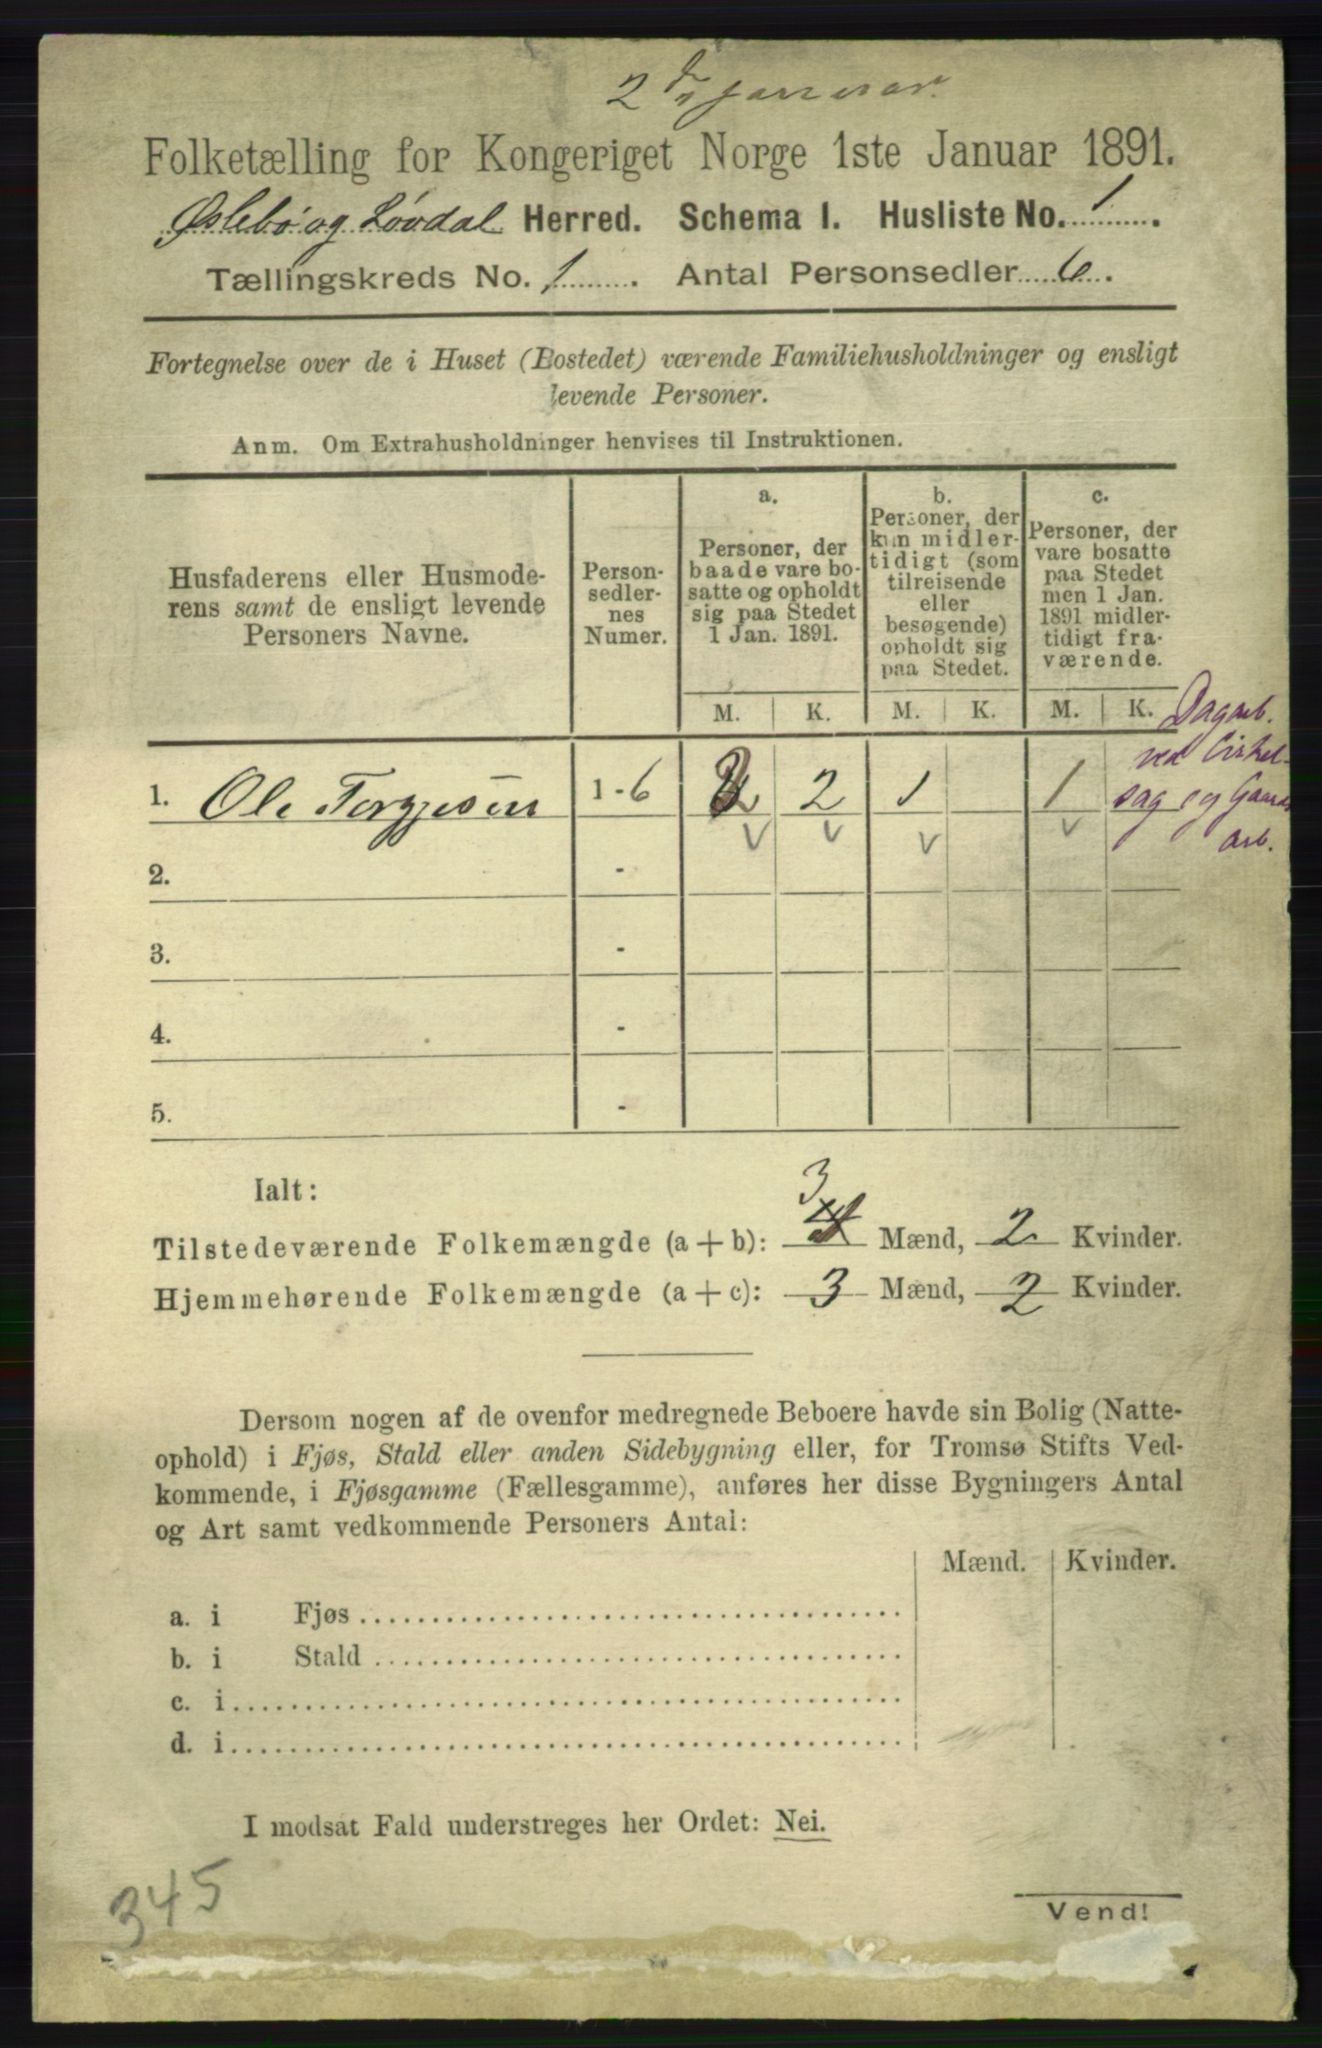 2 den Januar.
Folketælling for Kongeriget Norge 1ste Januar 1891.
Øslebø og Løvdal Herred. Schema I. Husliste No. 1.
Tællingskreds No. 1. Antal Personsedler 6.
Fortegnelse over de i Huset (Bostedet) værende Familiehusholdninger og ensligt
levende Personer.
Anm. Om Extrahusholdninger henvises til Instruktionen.
Husfaderens eller Husmode-
rens samt de ensligt levende
Personers Navne.
Person-
sedler-
nes
Numer.
a.
Personer, der
baade vare bo-
satte og opholdt
sig paa Stedet
1 Jan. 1891.
b.
Personer, der
kun midler-
tidigt (som
tilreisende
eller
besøgende)
opholdt sig
paa Stedet.
c.
Personer, der
vare bosatte
paa Stedet
men 1 Jan.
1891 midler-
tidigt fra-
værende.
M. K. M. K. M. K.
1. Ole Torgjesen 1-6 2 2 1 1
Dagarb.
ved Cirkel-
sag og Gaards
arb.
2. -
3. -
4. -
5. -
Ialt:
3
Tilstedeværende Folkemængde (a + b): Mænd, 2 Kvinder.
Hjemmehørende Folkemængde (a + c): 3 Mænd, 2 Kvinder.
Dersom nogen af de ovenfor medregnede Beboere havde sin Bolig (Natte-
ophold) i Fjøs, Stald eller anden Sidebygning eller, for Tromsø Stifts Ved-
kommende, i Fjøsgamme (Fællesgamme), anføres her disse Bygningers Antal
og Art samt vedkommende Personers Antal:
Mænd. Kvinder.
a. i Fjøs
b. i Stald
c. i
d. i
I modsat Fald understreges her Ordet: Nei.
345
Vend!